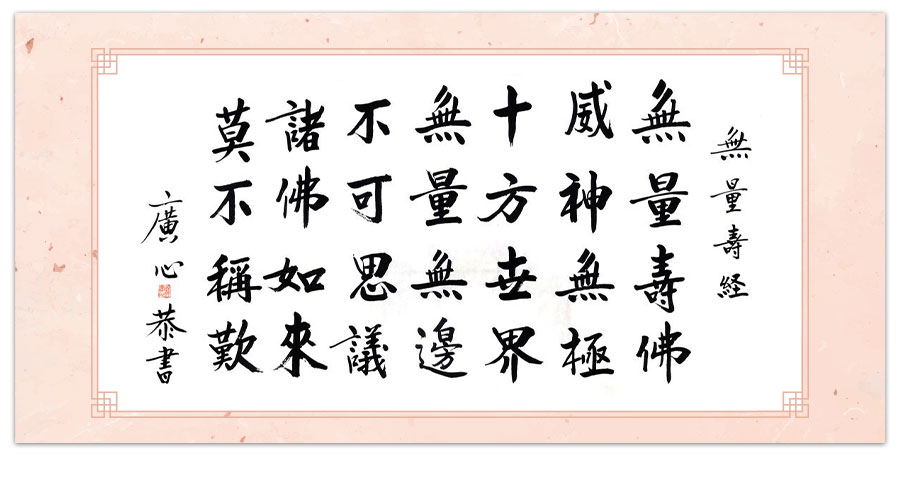 無量壽経
無量壽佛
威神無極
十方世界
無量無邊
不可思議
諸佛如來
莫不稱歎
廣心恭書